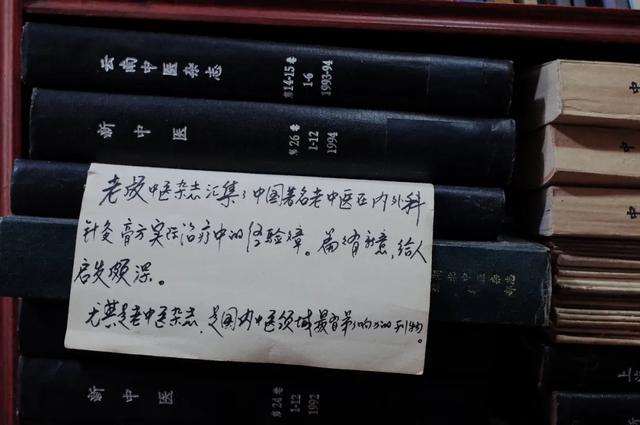 云南中医杂志 第14-15卷 1-6 1993-94
新中医 第26卷 1-12 1994
老版中医杂志汇集了中国著名老中医在内外科
针灸膏方实际治疗中的经验。篇篇有新意，给人
启发颇深。
尤其是老中医杂志，是国内中医领域最有影响力的刊物。
北中医杂志
新中医 第24卷 1-12 1992
中
中
中
上